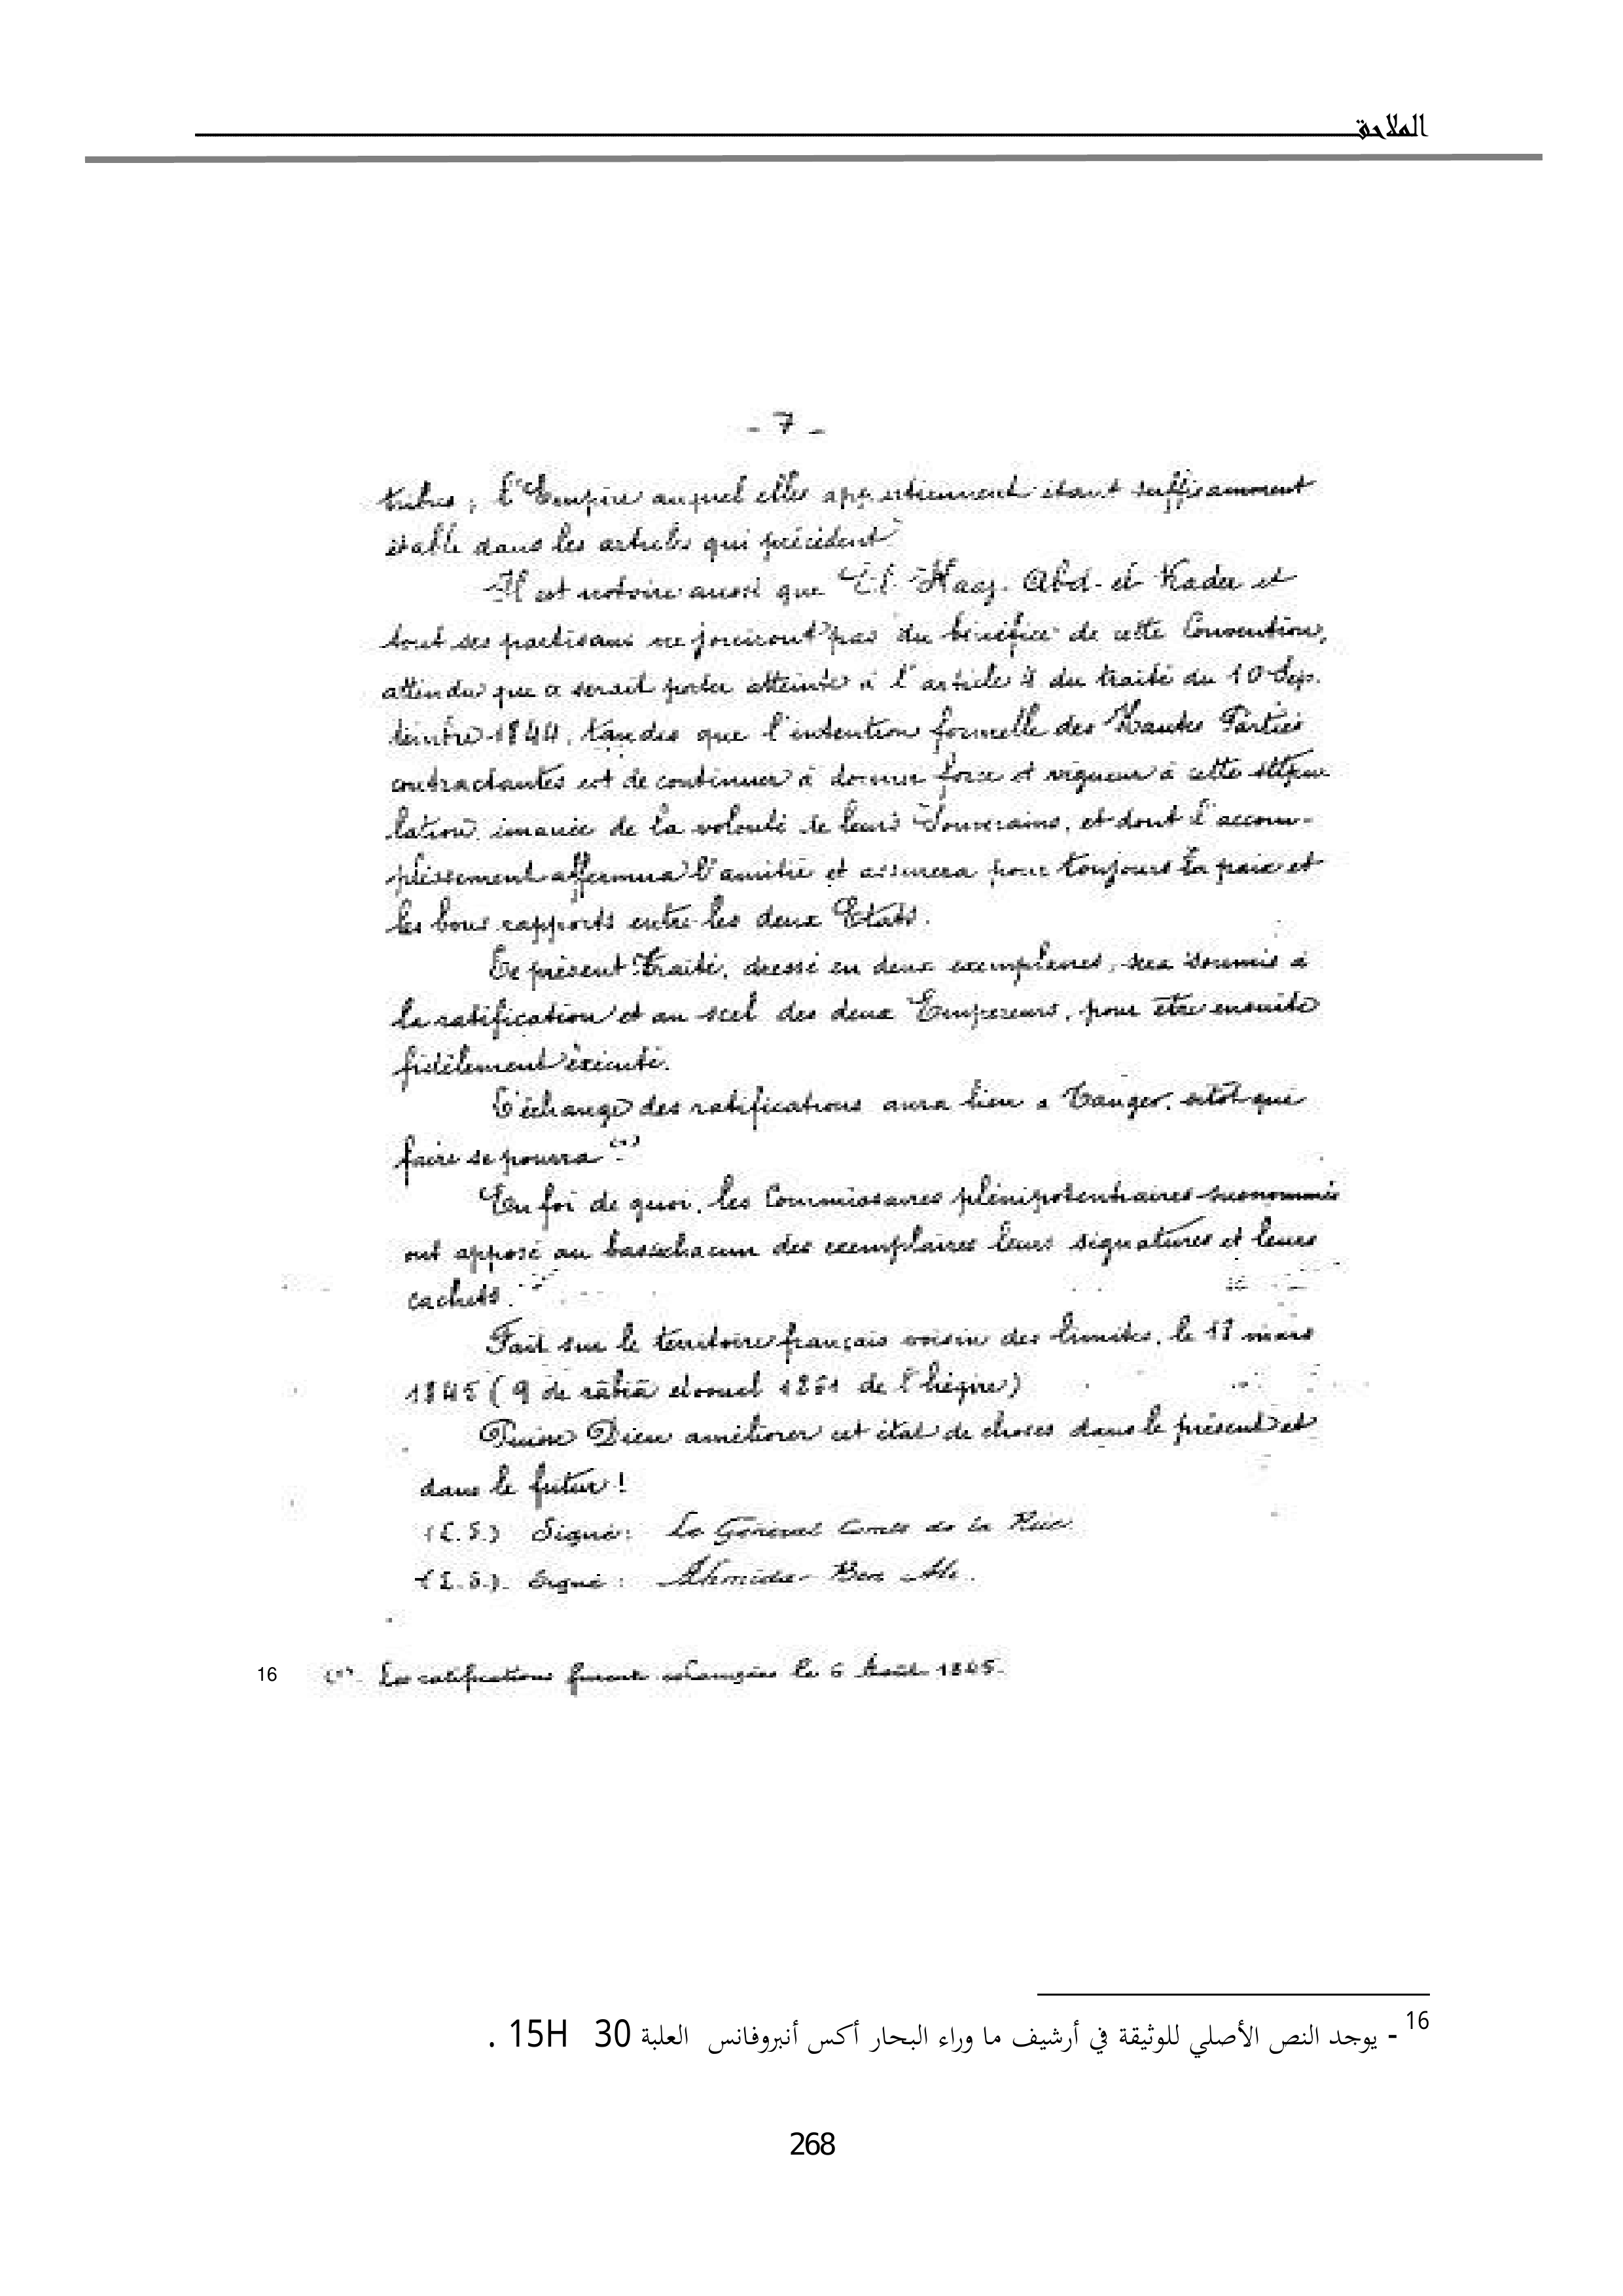 الملاحق
- 7 -
tribus ; l'Empire auquel elles appartiennent étant suffisamment
établi dans les articles qui précèdent
Il est notoire aussi que El-Hadj-Abd-el-Kader et
tout ses partisans ne jouiront pas du bénéfice de cette Convention,
attendu que ce serait porter atteinte à l'article 4 du traité du 10 Sep.
tembre 1844, tandis que l'intention formelle des Hautes Parties
contractantes est de continuer à donner force et vigueur à cette stipu
lation émanée de la volonté de leurs Souverains, et dont l'accom-
plissement affermira l'amitié et assurera pour toujours la paix et
les bons rapports entre les deux Etats.
Le présent Traité, dressé en deux exemplaires, sera soumis à
la ratification et au scel des deux Empereurs, pour être ensuite
fidèlement éxécuté.
L'échange des ratifications aura lieu à Tanger, sitôt que
faire se pourra (1)
En foi de quoi, les Commissaires plénipotentiaires susnommés
ont apposé au bas de chacun des exemplaires leurs signatures et leurs
cachets.
Fait sur le territoire français voisin des limites, le 18 mars
1845 (9 de râbiâ elouel 1261 de l'hégire)
Puisse Dieu améliorer cet état de choses dans le présent et
dans le futur !
(L.S.) Signé : Le Général Comte de la Rüe
(L.S.) Signé : Ahmida-Ben-Ali.
(1) Les ratifications furent échangées le 6 Août 1845.
16
16 - يوجد النص الأصلي للوثيقة في أرشيف ما وراء البحار أكس أنبروفانس العلبة 30 15H .
268